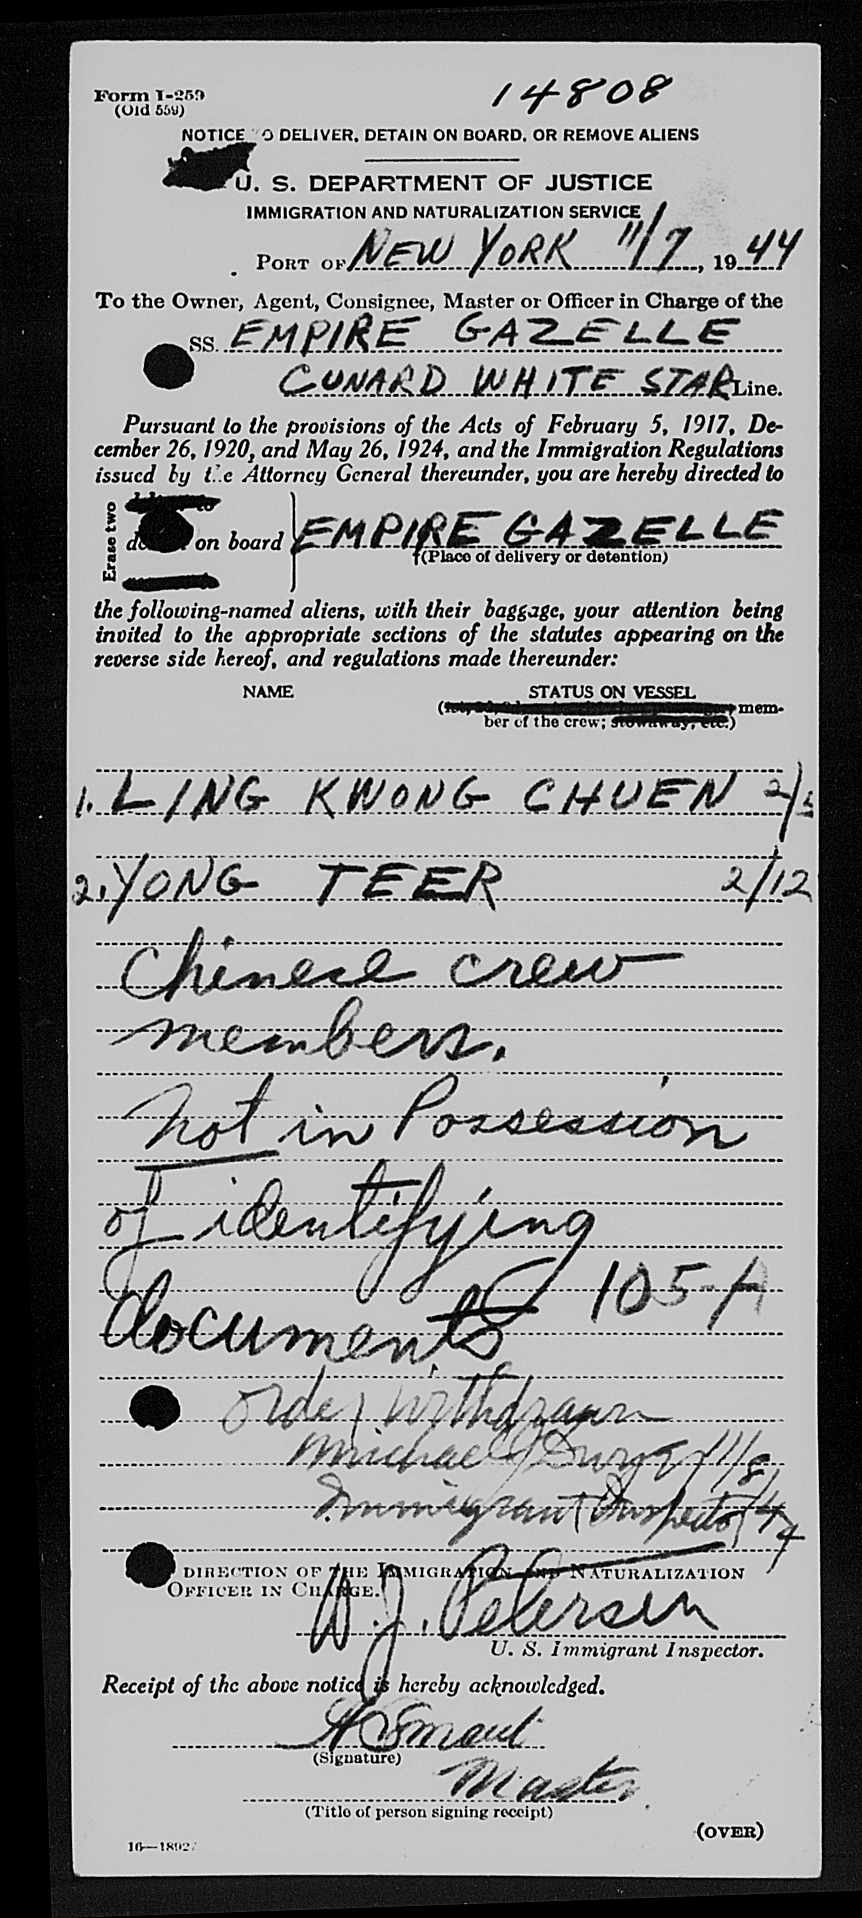 Form I-259
(Old 559)
14808
NOTICE TO DELIVER, DETAIN ON BOARD, OR REMOVE ALIENS
U. S. DEPARTMENT OF JUSTICE
IMMIGRATION AND NATURALIZATION SERVICE
PORT OF NEW YORK 11/7, 1944
To the Owner, Agent, Consignee, Master or Officer in Charge of the
SS. EMPIRE GAZELLE
CUNARD WHITE STAR Line.
Pursuant to the provisions of the Acts of February 5, 1917, De-
cember 26, 1920, and May 26, 1924, and the Immigration Regulations
issued by the Attorney General thereunder, you are hereby directed to
Erase two
on board } EMPIRE GAZELLE
(Place of delivery or detention)
the following-named aliens, with their baggage, your attention being
invited to the appropriate sections of the statutes appearing on the
reverse side hereof, and regulations made thereunder:
NAME STATUS ON VESSEL
mem-
ber of the crew; stowaway, etc.)
1. LING KWONG CHUEN 2/5
2. YONG TEER 2/12
Chinese crew
members.
Not in Possession
of identifying
documents 105-A
Order Withdrawn
Michael J Dwyer 11/8/44
Immigrant Inspector
DIRECTION OF THE IMMIGRATION AND NATURALIZATION
OFFICER IN CHARGE.
W. J. Petersen
U. S. Immigrant Inspector.
Receipt of the above notice is hereby acknowledged.
A Smart
(Signature)
Master.
(Title of person signing receipt)
(OVER)